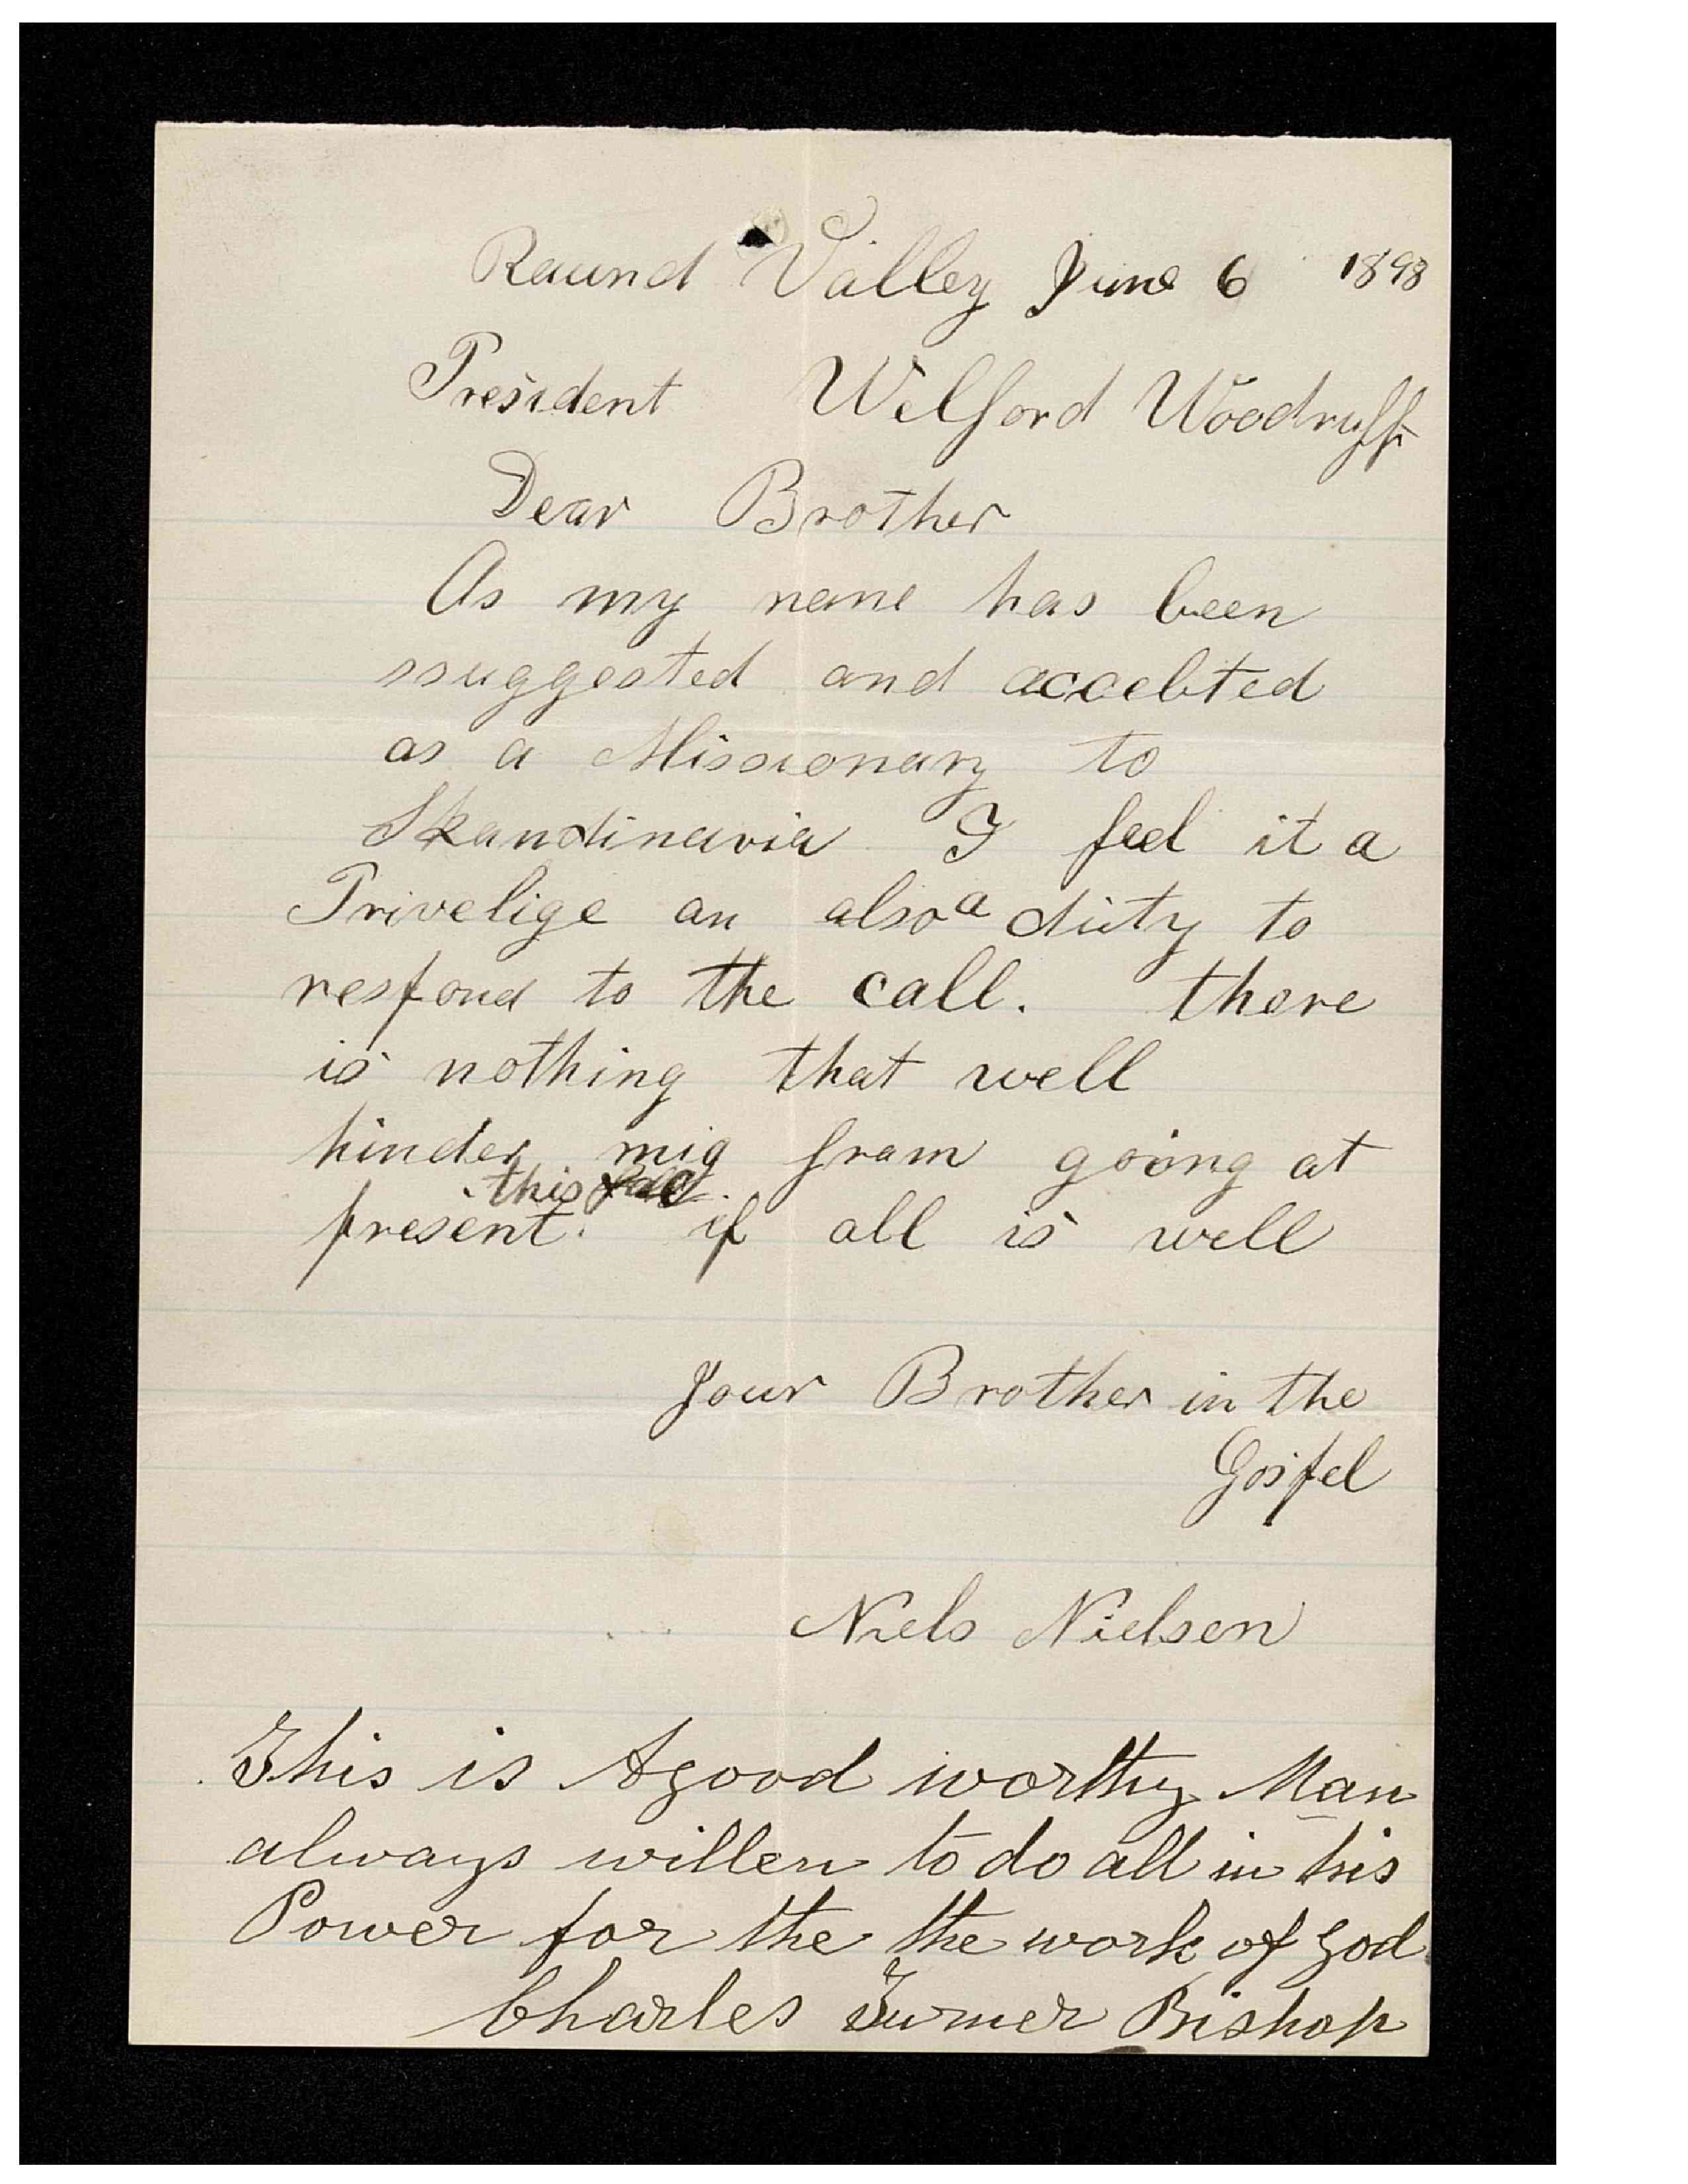 Raund Valley June 6 1898
President Wilford Woodruff
Dear Brother
As my name has been
ssuggested and accebted
as a Missionary to
Skandinavia I feel it a
Privelige an also a duty to
respond to the call. there
is nothing that well
hinder mig fram going at
this fall
present. if all is well
Your Brother in the
Gospel
Niels Nielsen
This is A good worthy Man
always willen to do all in his
Power for the the work of God
Charles Turner Bishop